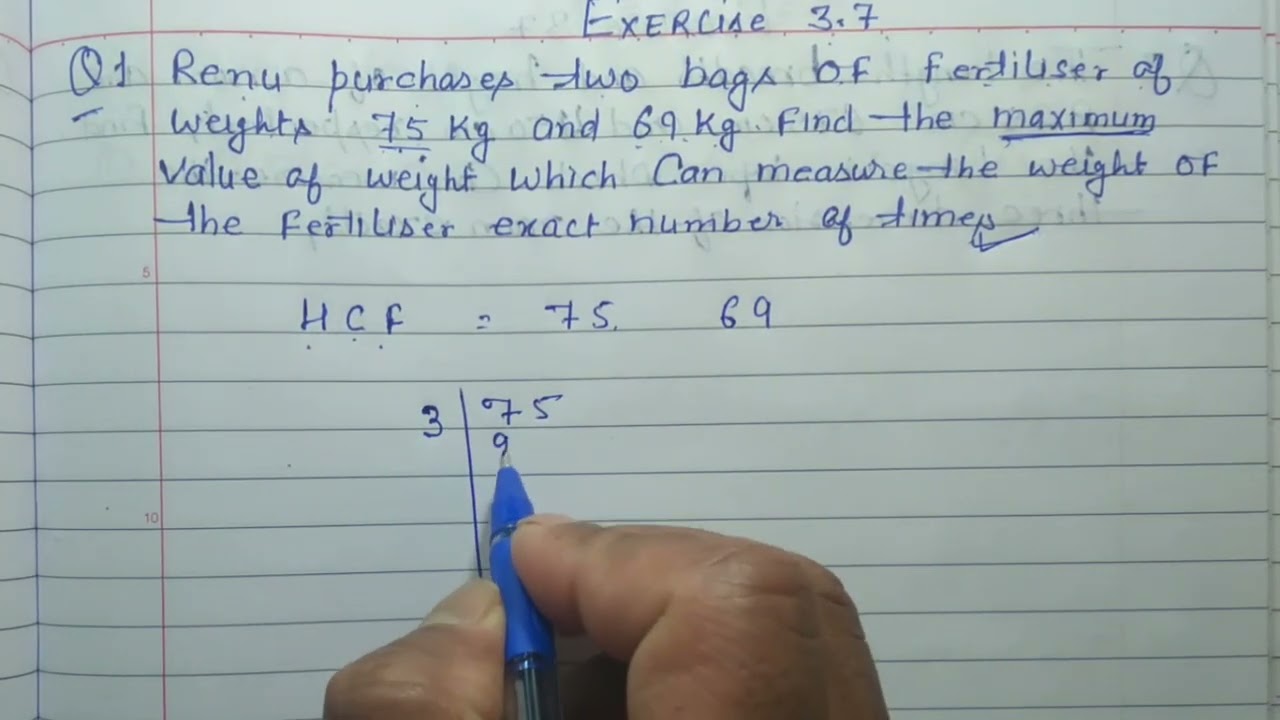 EXERCISE 3.7
Q1 Renu purchases two bags of fertiliser of
weights 75 Kg and 69 Kg. Find the maximum
value of weight which can measure the weight of
the fertiliser exact number of times
5
HCF = 75. 69
3 75
9
10